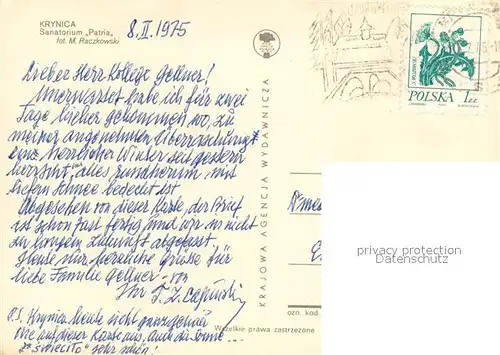 KRYNICA
Sanatorium „Patria"
fot. M. Raczkowski
8.II.1975
Lieber Herr Kollege Gellner!
Unerwartet habe ich für zwei
Tage hierher gekommen wo, zu
meiner angenehmen Überraschung
ein herrlicher Winter seit gestern
herrscht, alles rundherum mit
tiefem Schnee bedeckt ist
Abgesehen von dieser Karte, der Brief
ist schon fast fertig und war es nicht
zu langem abgefasst.
Heute nur herzliche Grüsse für
liebe Familie Gellner - von
Ihr T. Z.
P.S. Krynica heute sieht ganz genau
wie auf dieser Karte aus, auch die Sonne
sehr schön!
KRAJOWA AGENCJA WYDAWNICZA
POLSKA 1 ZŁ
ozn. kod
Wszelkie prawa zastrzeżone
privacy protection
watermark